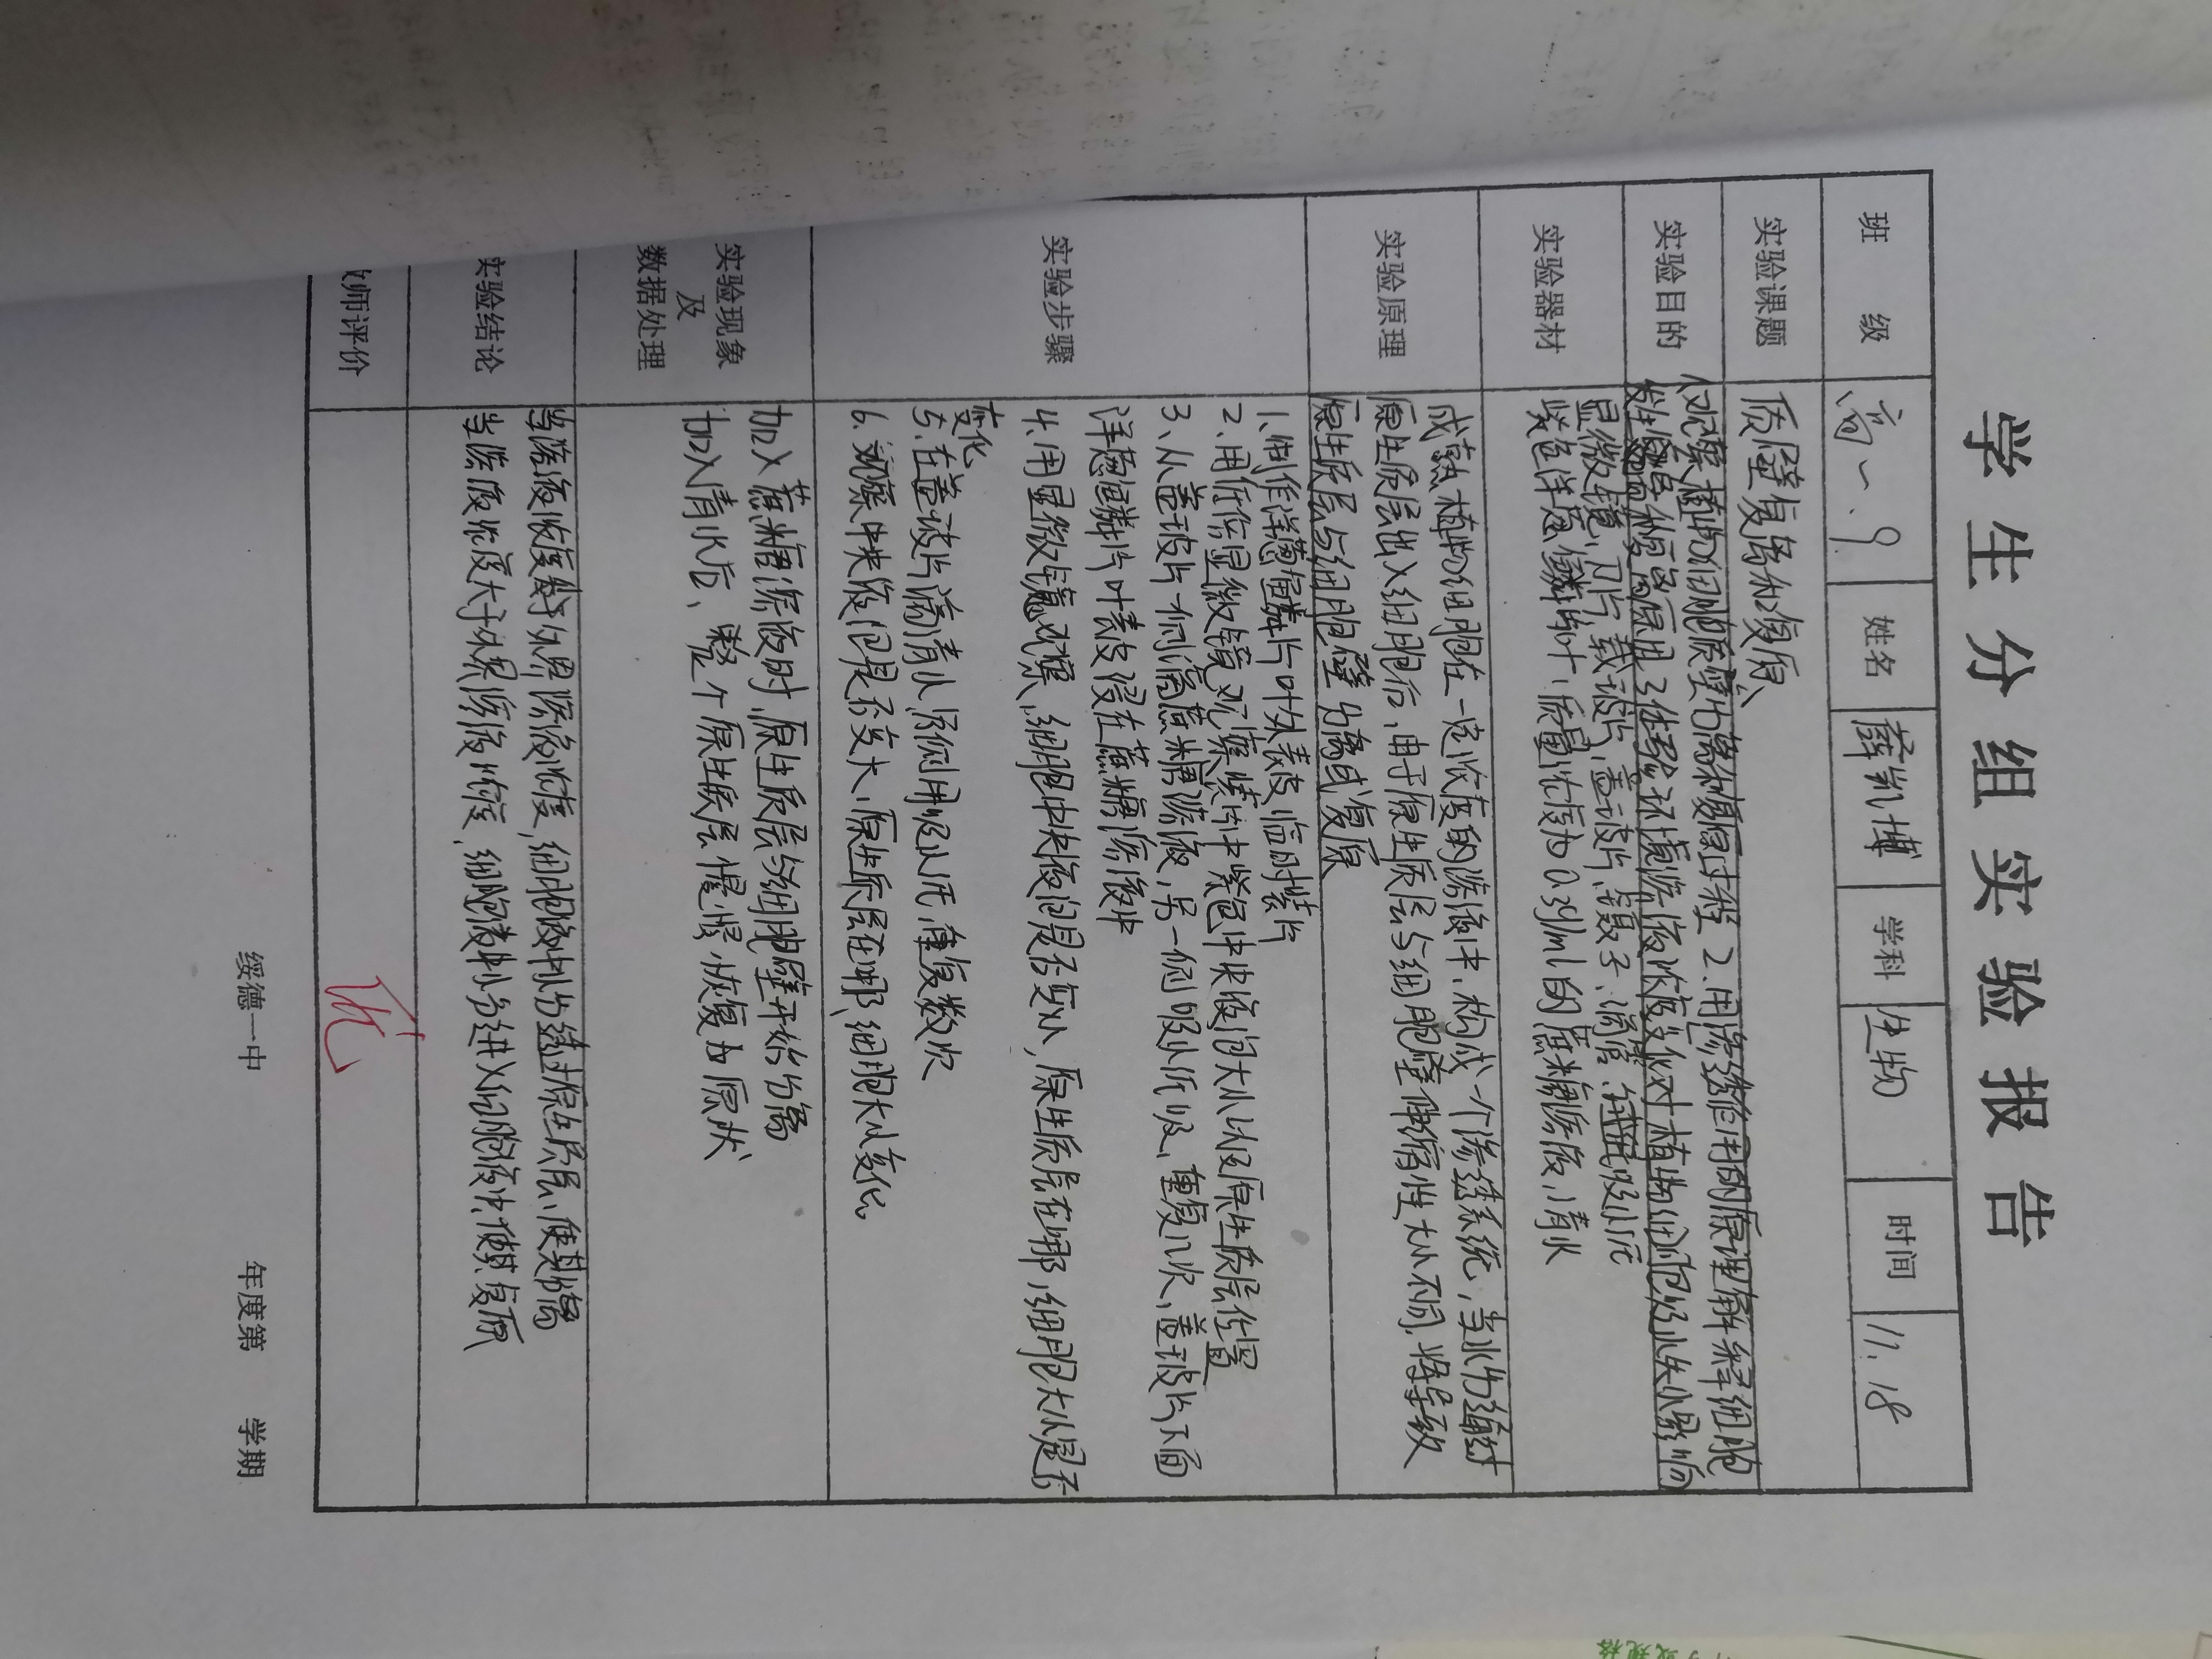 学生分组实验报告
班 级 高一.9 姓名 薛凯博 学科 生物 时间 11.18
实验课题 质壁复离和复原
实验目的 仅观察植物细胞质壁分离和复原过程 2.用渗透作用的原理解释细胞
发生质壁分离和复原的原因 3.体验环境溶液浓度变化对植物细胞吸水失水影响
实验器材 显微镜、刀片、载玻片、盖玻片、镊子、滴管、吸水纸
紫色洋葱鳞片叶、质量浓度为0.3g/ml的蔗糖溶液、清水
实验原理 成熟植物细胞在一定浓度的溶液中,构成一个渗透系统,当水分通过
原生质层出入细胞后,由于原生质层与细胞壁伸缩性大小不同,将导致
原生质层与细胞壁分离或复原
实验步骤 1.制作洋葱鳞片叶外表皮临时装片
2.用低倍显微镜观察装片中紫色中央液泡大小以及原生质层位置
3.从盖玻片一侧滴蔗糖溶液,另一侧吸水纸吸,重复几次,盖玻片下面
洋葱鳞片叶表皮浸在蔗糖溶液中
4.用显微镜观察,细胞中央液泡是否变小,原生质层在哪,细胞大小是否
变化
5.在盖玻片滴清水,另侧用吸水纸,重复数次
6.观察中央液泡是否变大,原生质层在哪,细胞大小变化
实验现象
及
数据处理
加入蔗糖溶液时,原生质层与细胞壁开始分离
加入清水后、整个原生质层慢慢恢复为原状
实验结论 当溶液浓度小于外界溶液浓度,细胞液中水分透过原生质层,使其分离
当溶液浓度大于外界溶液浓度,细胞液中水分进入细胞液中,使其复原
师评价 优
绥德一中 年度第 学期